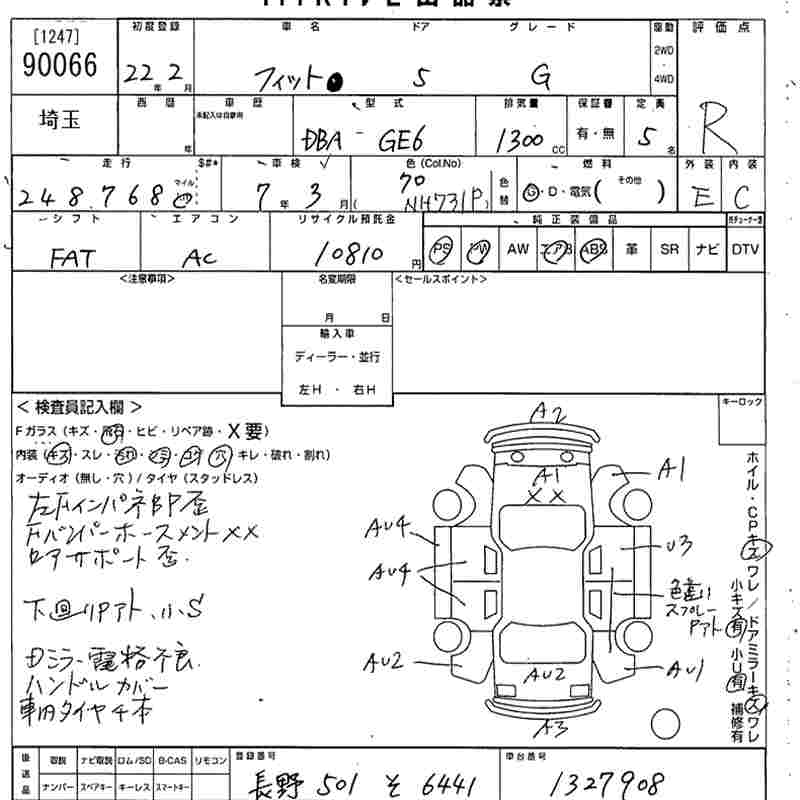 [1247]
90066
初度登録 車名 ドア グレード 駆動 評価点
22年 2月 フィット 5 G 2WD・4WD R
埼玉 西暦 車歴 型式 排気量 保証書 定員
未記入は自家用
年 DBA - GE6 1300 CC 有・無 5名
走行 $#* 車検 色(Col.No) 燃料 外装 内装
248,768 マイル 7年 3月 70 NH731P 色替 G・D・電気( その他 ) E C
シフト エアコン リサイクル預託金 純正装備品
FAT AC 10810 円 PS PW AW エアB ABS 革 SR ナビ DTV
<注意事項> 名変期限 <セールスポイント>
月 日
輸入車
ディーラー・並行
左H ・ 右H
<検査員記入欄> キーロック
Fガラス(キズ・飛石・ヒビ・リペア跡・X要)
内装(キズ・スレ・汚れ・シミ・コゲ・穴・キレ・破れ・割れ)
オーディオ(無し・穴)/タイヤ(スタッドレス)
左Fインパネ部歪
Fバンパーホースメント××
ロアサポート歪
下回りPアト、小S
Dミラー電格不良
ハンドルカバー
車内タイヤ4本
A2
A1
××
A1
AU4
U3
AU4
色違い
スプレー
Pアト
AU2
AU2
AU1
A3
ホイル・CPキズワレ/ドアミラーキズワレ
小キズ有 小U有 補修有
後送品 取説 ナビ取説 ロム/SD B-CAS リモコン 登録番号 車台番号
ナンバー スペアキー キーレス スマートキー 長野 501 そ 6441 1327908